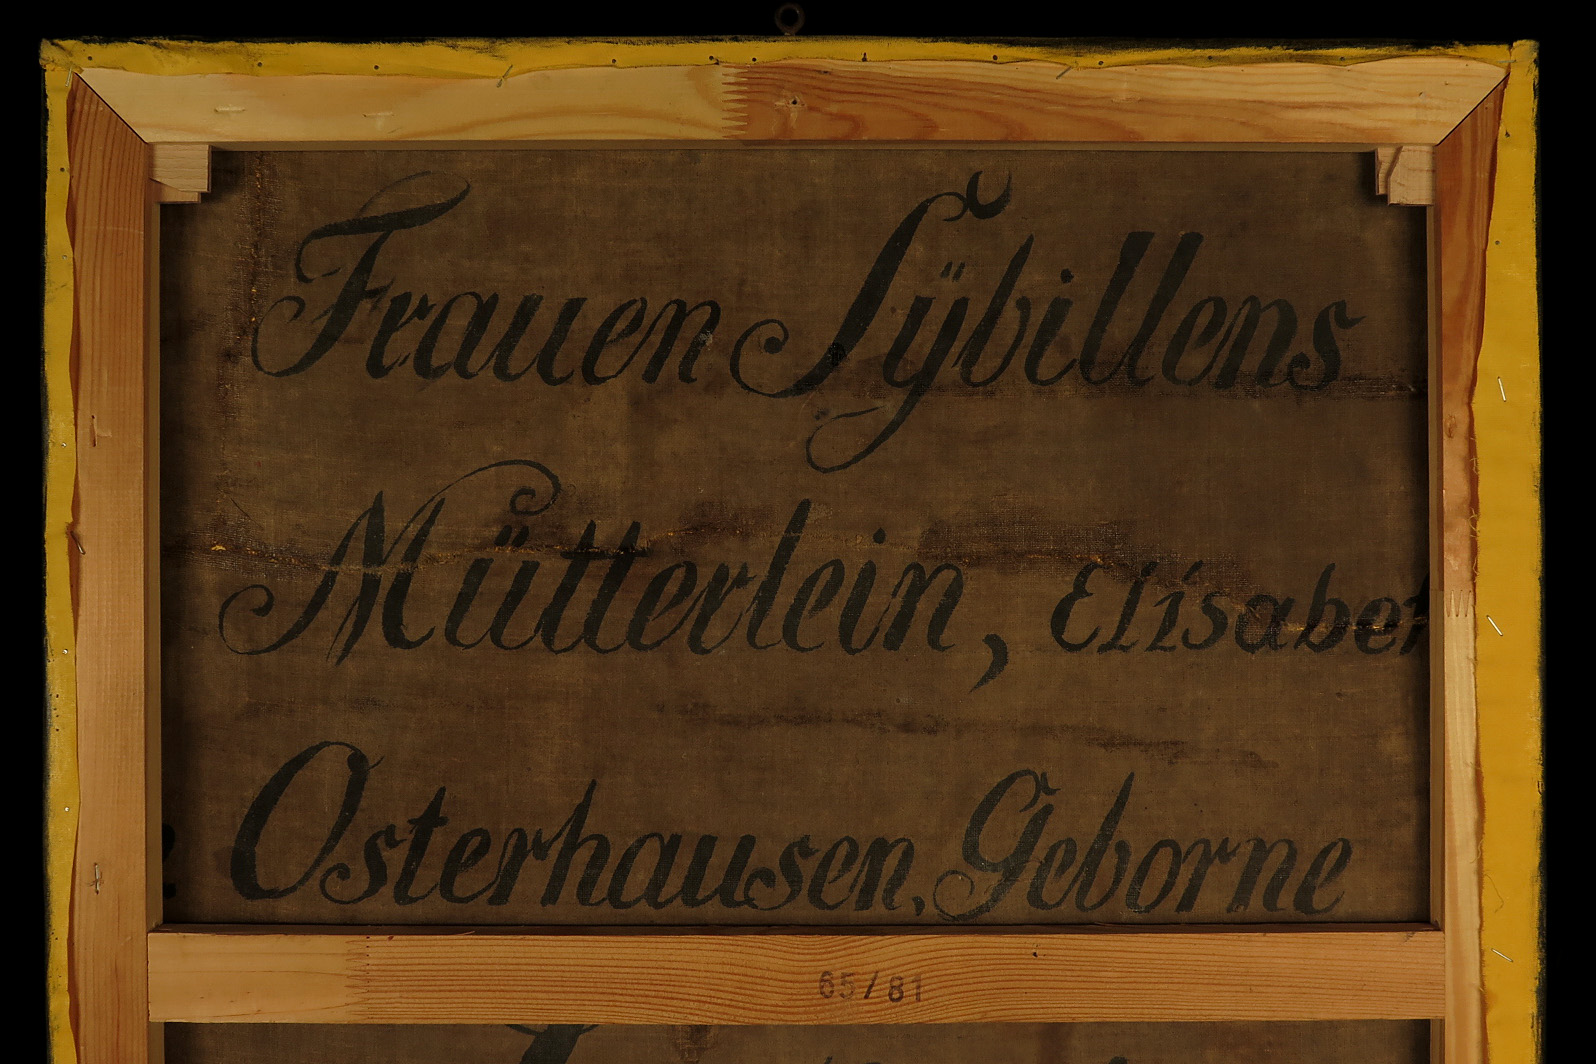 Frauen Sÿbillens
Mütterlein, Elisabet
Osterhausen, Geborne
65/81